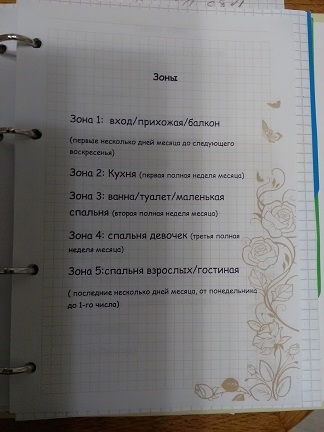 Зоны
Зона 1: вход/прихожая/балкон
(первые несколько дней месяца до следующего
воскресенья)
Зона 2: Кухня (первая полная неделя месяца)
Зона 3: ванна/туалет/маленькая
спальня (вторая полная неделя месяца)
Зона 4: спальня девочек (третья полная
неделя месяца)
Зона 5:спальня взрослых/гостиная
( последние несколько дней месяца, от понедельника
до 1-го числа)